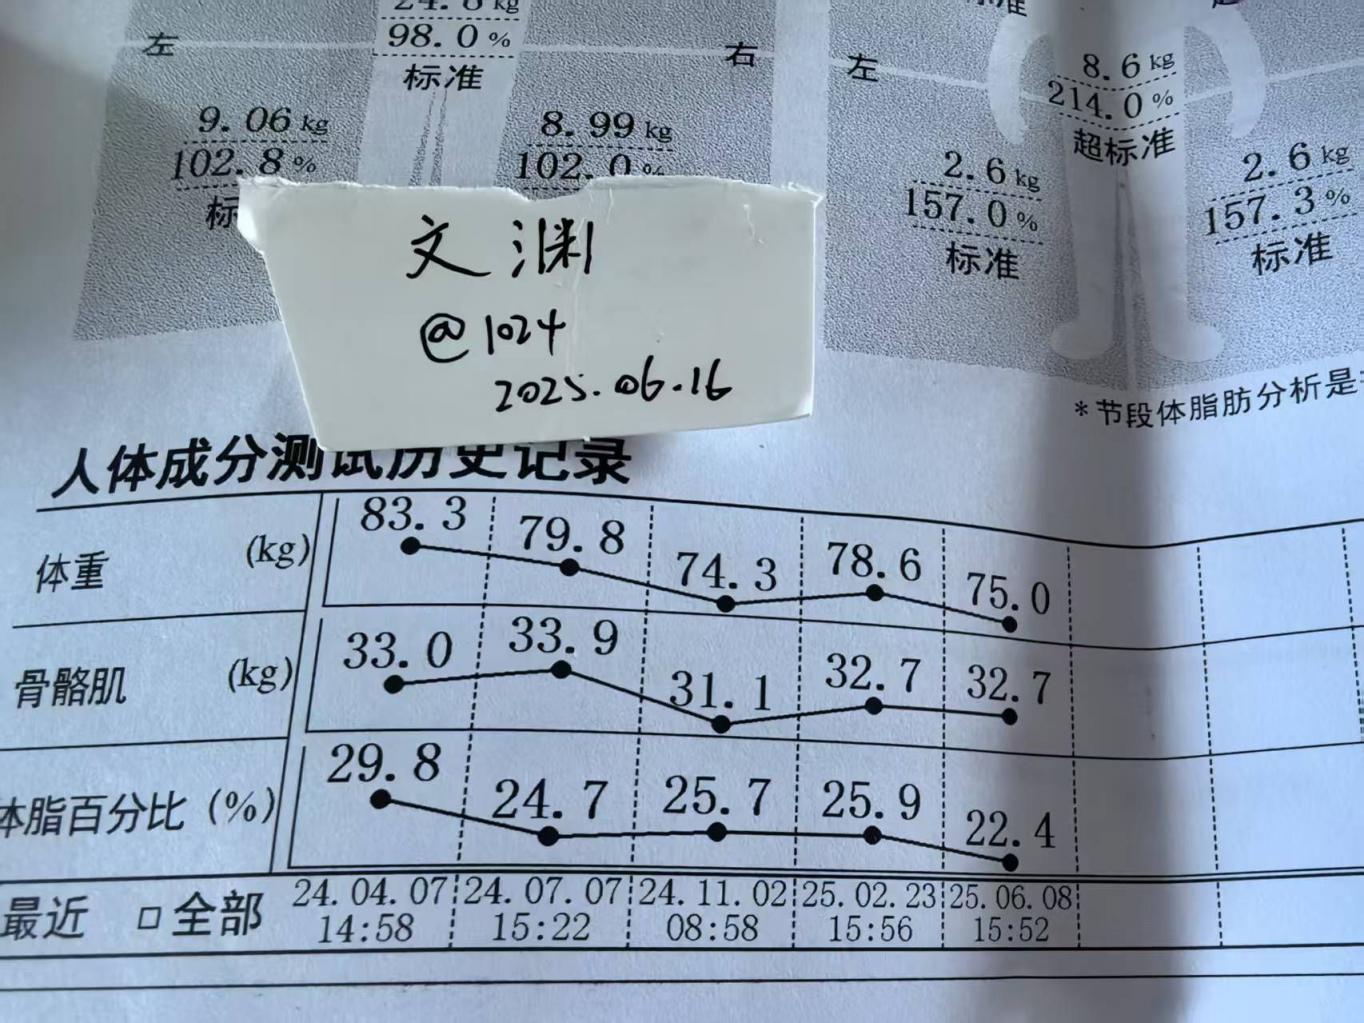 24.8 kg
98.0 %
标准
左
右
9.06 kg
102.8 %
8.99 kg
102.0 %
左
8.6 kg
214.0 %
超标准
2.6 kg
157.0 %
标准
2.6 kg
157.3 %
标准
*节段体脂肪分析是
文渊
@1024
2025.06.16
人体成分测试历史记录
体重 (kg) 83.3 79.8 74.3 78.6 75.0
骨骼肌 (kg) 33.0 33.9 31.1 32.7 32.7
体脂百分比 (%) 29.8 24.7 25.7 25.9 22.4
最近 □ 全部 24.04.07 24.07.07 24.11.02 25.02.23 25.06.08
14:58 15:22 08:58 15:56 15:52